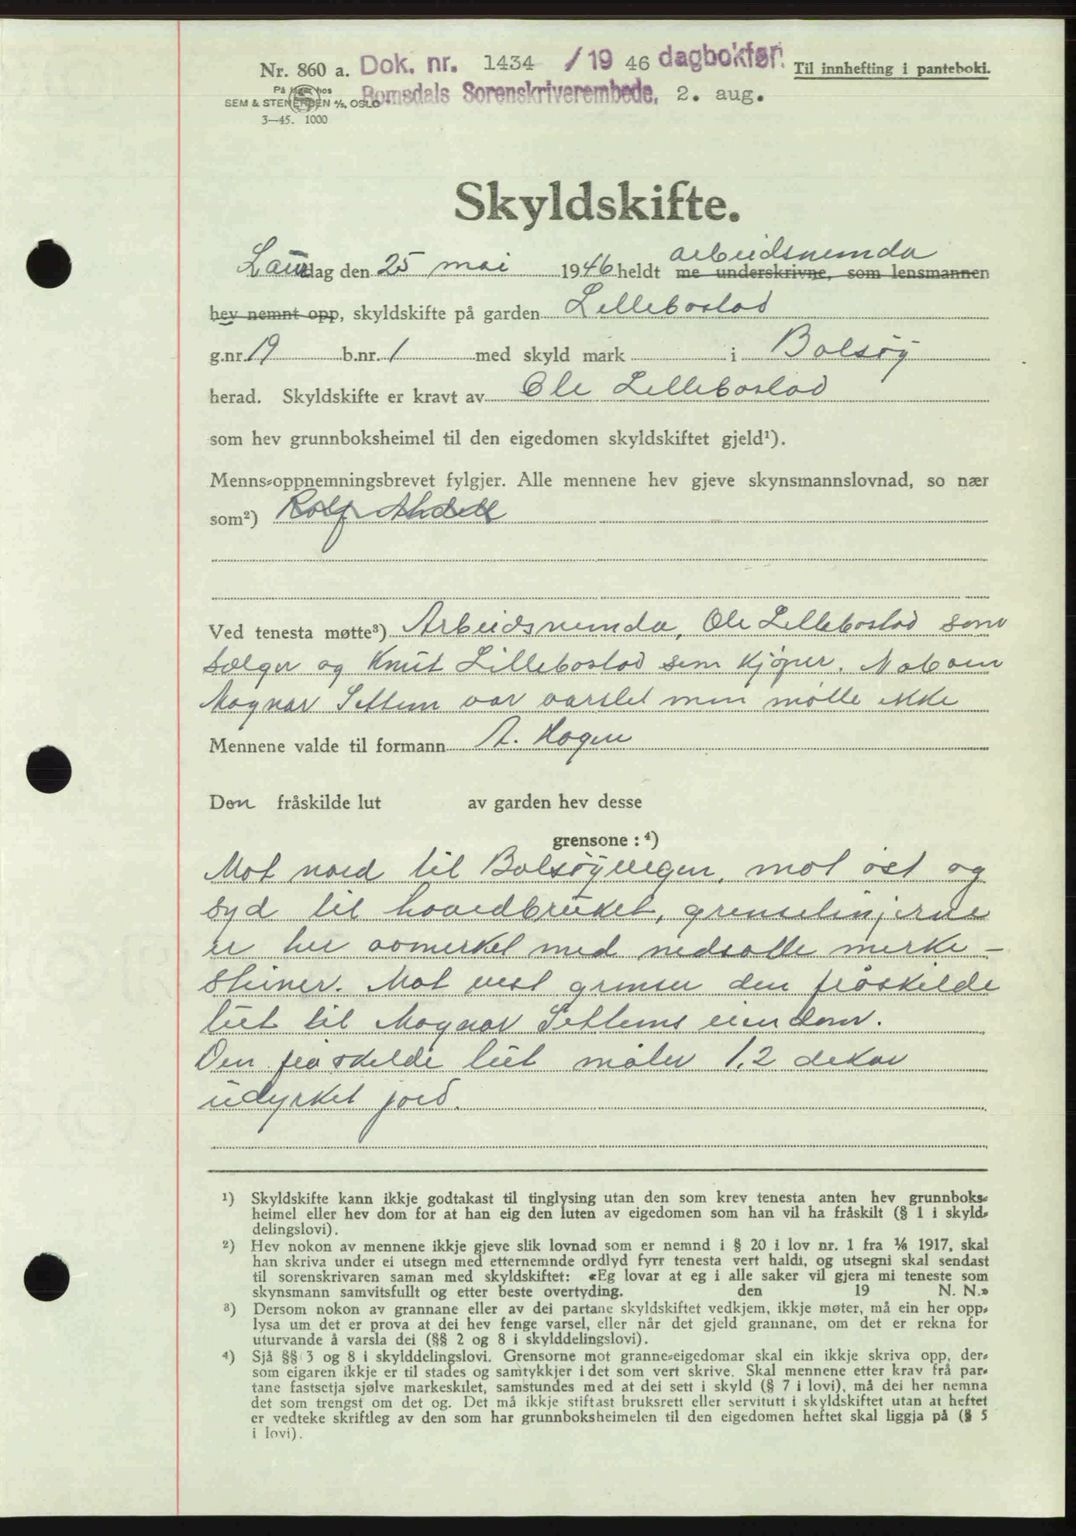 Nr. 860 a. Dok. nr. 1434 /19 46 dagbokført Til innhefting i panteboki.
På lager hos
SEM & STENERSEN A/S, OSLO Romsdals Sorenskriverembede, 2. aug.
3—45. 1000
Skyldskifte.
arbeidsnemda
Laurdag den 25 mai 1946 heldt me underskrivne, som lensmannen
hev nemnt opp, skyldskifte på garden Lillebostad
g.nr. 19 b.nr. 1 med skyld mark i Bolsøy
herad. Skyldskifte er kravt av Ole Lillebostad
som hev grunnboksheimel til den eigedomen skyldskiftet gjeld¹).
Menns-oppnemningsbrevet fylgjer. Alle mennene hev gjeve skynsmannslovnad, so nær
som²) Rolf
Ved tenesta møtte³) Arbeidsnemda, Ole Lillebostad som
sælger og Knut Lillebostad som kjøper. Naboen
Magnar Settem var varslet men møtte ikke
Mennene valde til formann A. Hagen
Den fråskilde lut av garden hev desse
grensone : ⁴)
Mot nord til Bolsøyvegen, mot øst og
syd til hovedbruket, grenselinjerne
er her avmerket med nedsatte merke-
steiner. Mot vest grenser den fråskilde
lut til Magnar Settems eiendom.
Den fråskilde lut måler 1,2 dekar
udyrket jord.
¹) Skyldskifte kann ikkje godtakast til tinglysing utan den som krev tenesta anten hev grunnboks-
heimel eller hev dom for at han eig den luten av eigedomen som han vil ha fråskilt (§ 1 i skyld-
delingslovi).
²) Hev nokon av mennene ikkje gjeve slik lovnad som er nemnd i § 20 i lov nr. 1 fra 1/6 1917, skal
han skriva under ei utsegn med etternemnde ordlyd fyrr tenesta vert haldi, og utsegni skal sendast
til sorenskrivaren saman med skyldskiftet: «Eg lovar at eg i alle saker vil gjera mi teneste som
skynsmann samvitsfullt og etter beste overtyding. den 19 N. N.»
³) Dersom nokon av grannane eller av dei partane skyldskiftet vedkjem, ikkje møter, må ein her opp-
lysa um det er prova at dei hev fenge varsel, eller når det gjeld grannane, om det er rekna for
uturvande å varsla dei (§§ 2 og 8 i skylddelingslovi).
⁴) Sjå §§ 3 og 8 i skylddelingslovi. Grensorne mot granne-eigedomar skal ein ikkje skriva opp, der-
som eigaren ikkje er til stades og samtykkjer i det som vert skrive. Skal mennene etter krav frå par-
tane fastsetja sjølve markeskilet, samstundes med at dei sett i skyld (§ 7 i lovi), må dei her nemna
det som trengst om det og. Det må ikkje stiftast bruksrett eller servitutt i skyldskiftet utan at heftet
er vedteke skriftleg av den som har grunnboksheimelen til den eigedomen heftet skal liggja på (§ 5
i lovi).